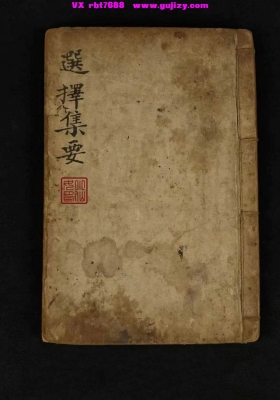 VX rbt7688 www.gujizy.com
選擇集要